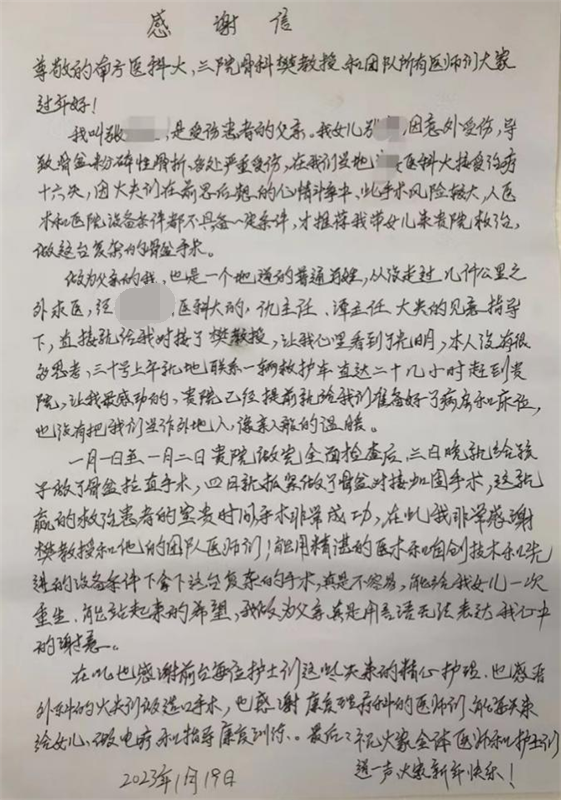 感谢信
尊敬的南方医科大，三院骨科樊教授和团队所有医师们大家
过年好！
我叫张 ，是受伤患者的父亲。我女儿张 ，因意外受伤，导
致骨盆粉碎性骨折，多处严重受伤，在我们当地 医科大接受治疗
十六天，因大夫们在前思后想的心情斗争中，此手术风险较大，人医
术和医院设备条件都不具备一定条件，才推荐我带女儿来贵院救治，
做这台复杂的骨盆手术。
做为父亲的我，也是一个地道的普通百姓，从没走过几仟公里之
外求医，经 医科大的，仇主任、谭主任 大夫的见意指导
下，直接就给我对接了樊教授，让我心里看到了光明，本人没有很
多思考，三十号上午就地联系一辆救护车直达二十几小时赶到贵
院，让我最感动的，贵院已经提前就给我们准备好了病房和床位，
也没有把我们当作外地人，像亲人般的温暖。
一月一日至一月二日贵院做完全面检查后，三日晚就给孩
子做了骨盆拉直手术，四日就板案做了骨盆对接加固手术，这就
赢的救治患者的宝贵时间手术非常成功，在此我非常感谢
樊教授和他的团队医师们！能用精湛的医术和自创技术和先
进的设备条件下拿下这台复杂的手术，真是不容易，能给我女儿一次
重生，能站起来的希望，我做为父亲真是用言语无法表达我心中
的谢意。
在此也感谢前台每位护士们这些天来的精心护理，也感谢
外科的大夫们做造口手术，也感谢康复理疗科的医师们，能每天来
给女儿做电疗和指导康复训练。最后，祝大家全体医师和护士们
道一声大家新年快乐！
2023年1月19日